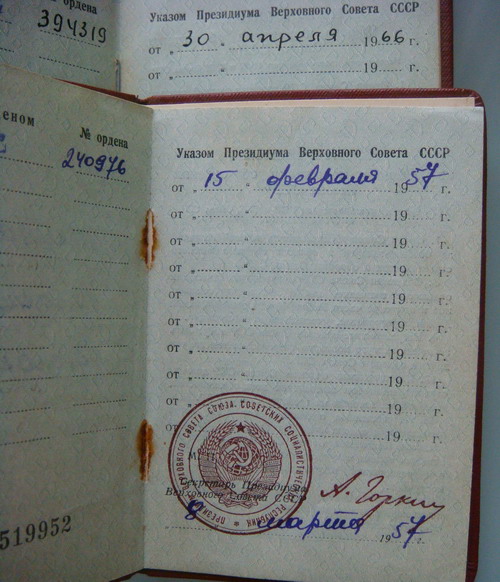 ордена
394319
Указом Президиума Верховного Совета СССР
от „ 30 “ апреля 1966 г.
от „ “ 19 г.
еном
№ ордена
240976
Указом Президиума Верховного Совета СССР
от „ 15 “ февраля 1957 г.
от „ “ 19 г.
от „ “ 19 г.
от „ “ 19 г.
от „ “ 19 г.
от „ “ 19 г.
от „ “ 19 г.
от „ “ 19 г.
от „ “ 19 г.
от 19 г.
Секретарь Президиума
Верховного Совета СССР
А. Горкин
8 марта 1957
519952
ПРЕЗИДИУМ ВЕРХОВНОГО СОВЕТА СОЮЗА СОВЕТСКИХ СОЦИАЛИСТИЧЕСКИХ РЕСПУБЛИК